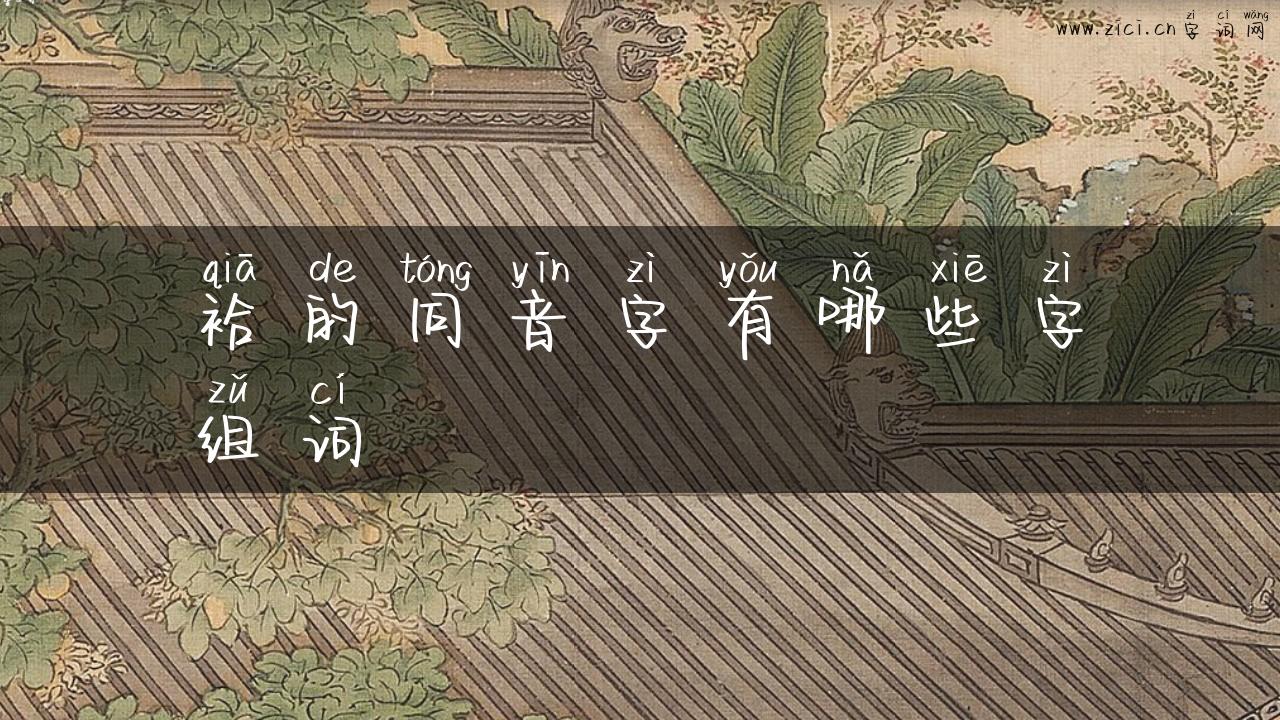 zì cí wǎng
www.zici.cn 字词网
qiā de tóng yīn zì yǒu nǎ xiē zì
袷的同音字有哪些字
zǔ cí
组词